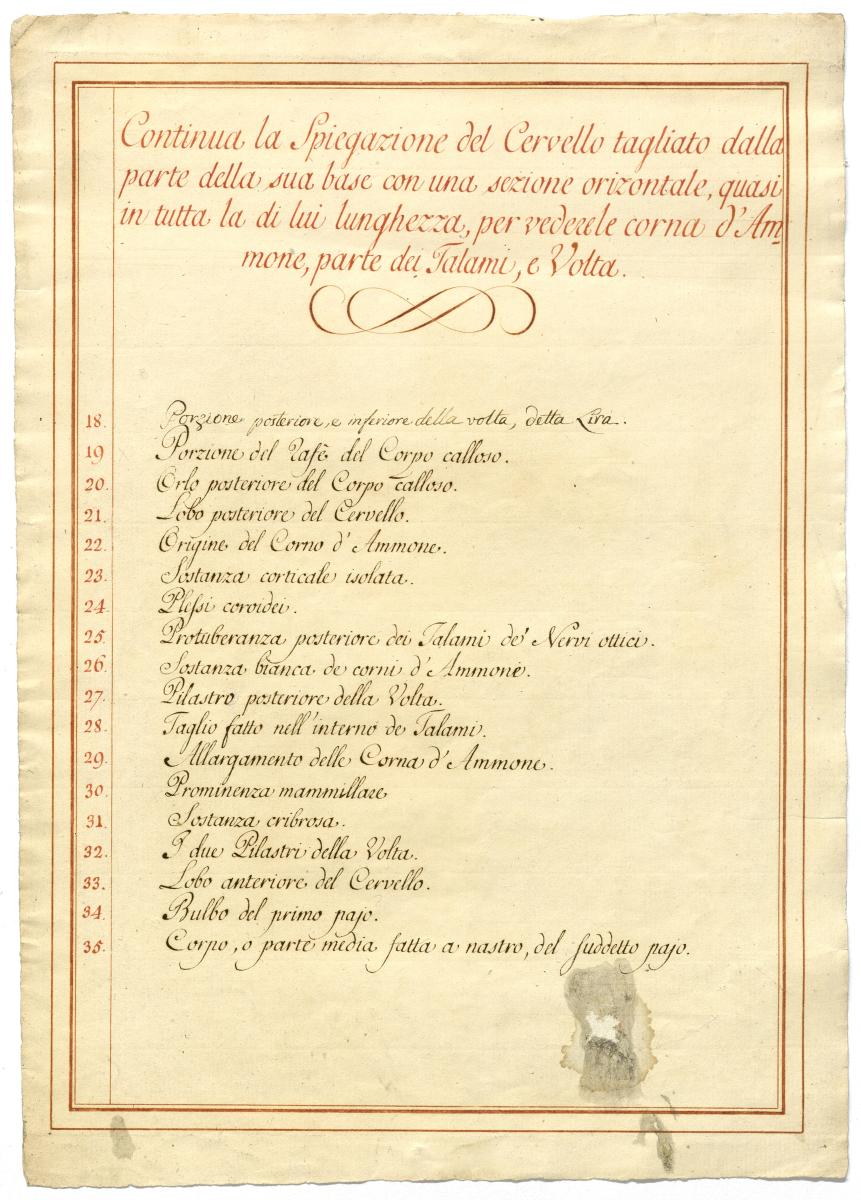 Continua la Spiegazione del Cervello tagliato dalla
parte della sua base con una sezione orizontale, quasi
in tutta la di lui lunghezza, per vederele corna d'Am=
mone, parte dei Talami, e Volta.
18. Porzione posteriore, e inferiore della volta, detta Lira.
19 Porzione del Rafè del Corpo calloso.
20. Orlo posteriore del Corpo calloso.
21. Lobo posteriore del Cervello.
22. Origine del Corno d'Ammone.
23. Sostanza corticale isolata.
24. Plessi coroidei.
25. Protuberanza posteriore dei Talami de' Nervi ottici.
26. Sostanza bianca de corni d'Ammone.
27. Pilastro posteriore della Volta.
28. Taglio fatto nell'interno de Talami.
29. Allargamento delle Corna d'Ammone.
30. Prominenza mammillare
31. Sostanza cribrosa.
32. I due Pilastri della Volta.
33. Lobo anteriore del Cervello.
34. Bulbo del primo pajo.
35. Corpo, o parte media fatta a nastro, del suddetto pajo.